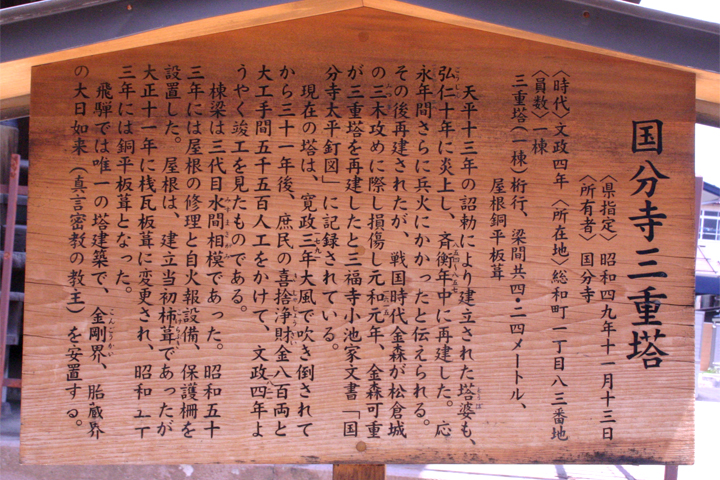 国分寺三重塔
〈県指定〉昭和四九年十一月十三日
〈所有者〉国分寺
〈時代〉文政四年〈所在地〉総和町一丁目八三番地
〈員数〉一棟
三重塔(一棟)桁行、梁間共四・二四メートル、
屋根銅平板葺
天平十三年の詔勅により建立された塔婆も、
弘仁十年に炎上し、斉衡年中に再建した。応
永年間さらに兵火にかかったと伝えられる。
その後再建されたが、戦国時代金森が松倉城
の三木攻めに際し損傷し元和元年、金森可重
が三重塔を再建したと三福寺小池家文書「国
分寺太平釘図」に記録されている。
現在の塔は、寛政三年大風で吹き倒されて
から三十一年後、庶民の喜捨浄財金八百両と
大工手間五千五百人工をかけて、文政四年よ
うやく竣工を見たものである。
棟梁は三代目水間相模であった。昭和五十
三年には屋根の修理と自火報設備、保護柵を
設置した。屋根は、建立当初柿葺であったが
大正十一年に桟瓦板葺に変更され、昭和
三年には銅平板葺となった。
飛騨では唯一の塔建築で、金剛界、胎蔵界
の大日如来(真言密教の教王)を安置する。